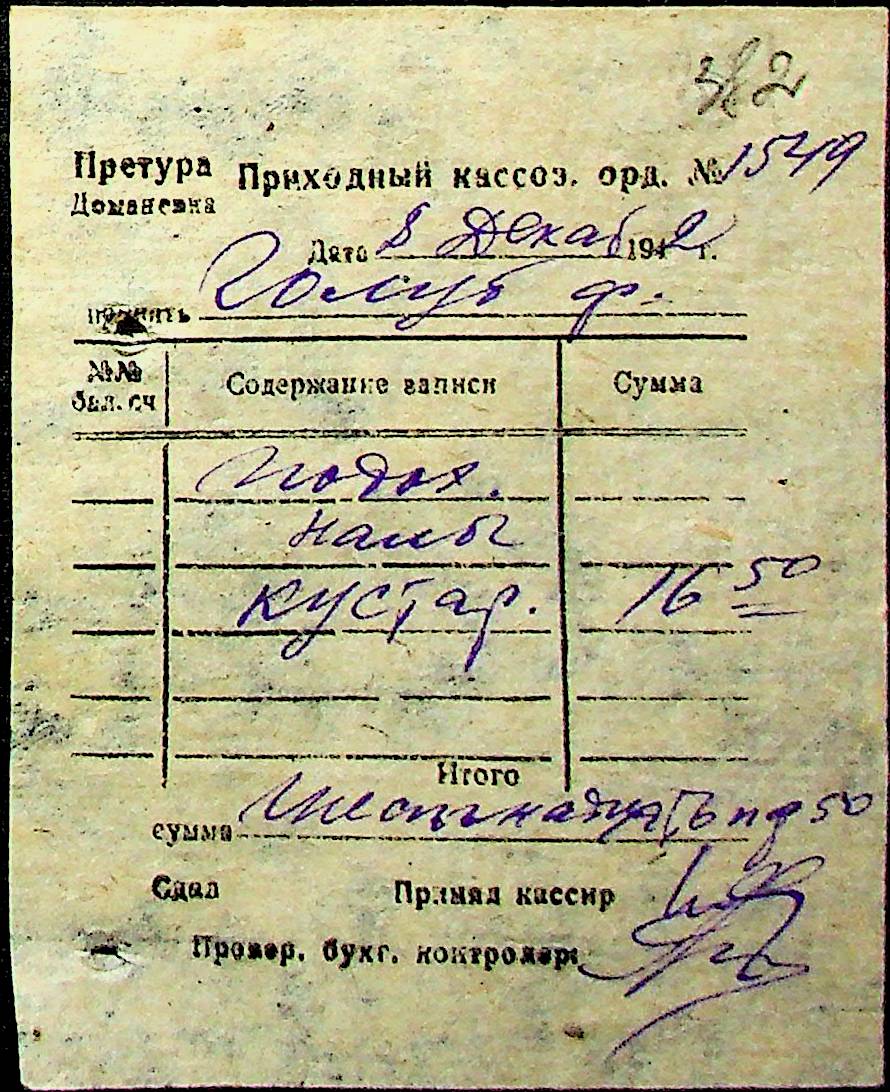 Претура Приходный кассов. орд. № 1549
Доманевка
Дата 8 Декаб 1942 г.
принять Голуб Ф.
№№ бал. сч
Содержание записи
Сумма
подох.
налог
кустар. 16 50
Итого
сумма Шестнадцать 50
Сдал Принял кассир
Провер. бухг. контролер: